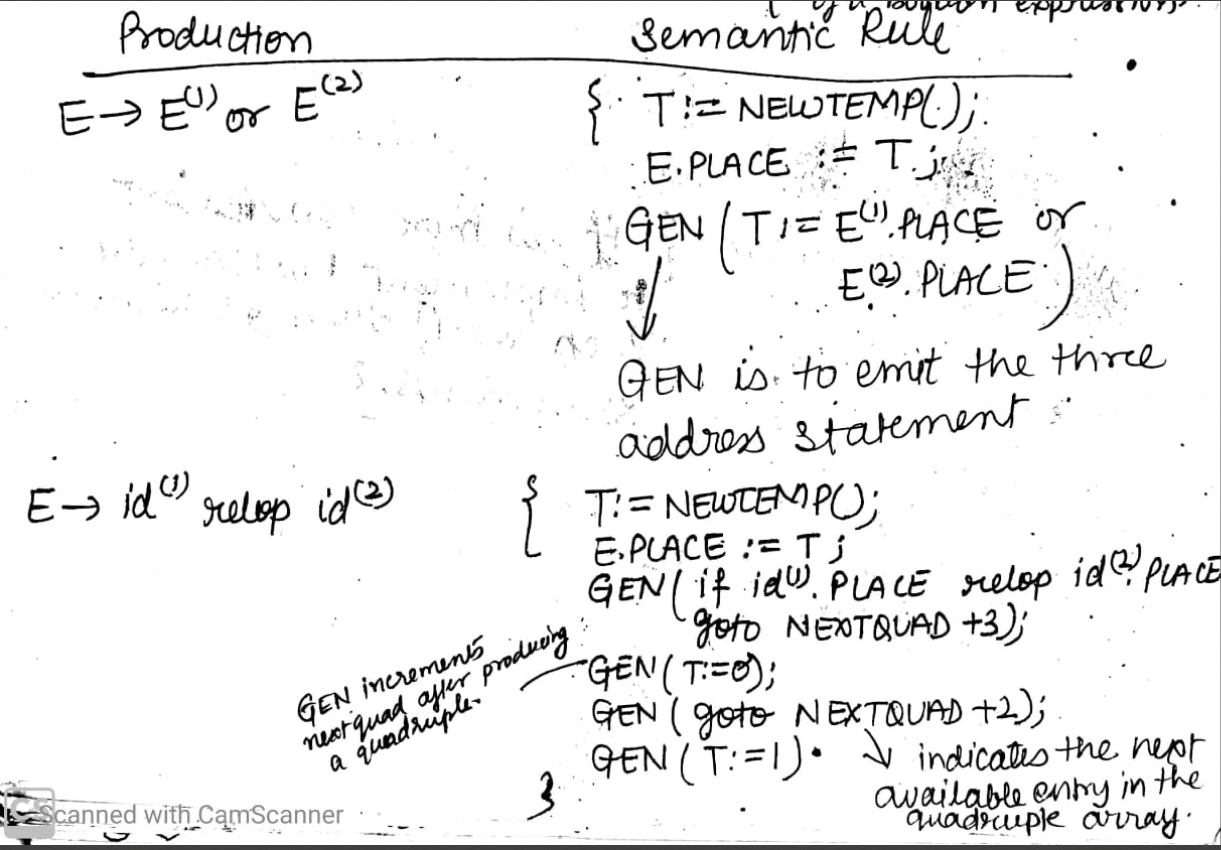 expressions.
Production Semantic Rule
E → E⁽¹⁾ or E⁽²⁾ { T:= NEWTEMP();
E.PLACE := T;
GEN (T:= E⁽¹⁾.PLACE or
E⁽²⁾.PLACE)
GEN is to emit the three
address statement
E → id⁽¹⁾ relop id⁽²⁾ { T:= NEWTEMP();
E.PLACE := T;
GEN( if id⁽¹⁾.PLACE relop id⁽²⁾.PLACE
goto NEXTQUAD +3);
GEN( T:=0);
GEN ( goto NEXTQUAD +2);
GEN ( T:=1).
}
GEN increments
nextquad after producing
a quadruple.
indicates the next
available entry in the
quadruple array.
CS Scanned with CamScanner